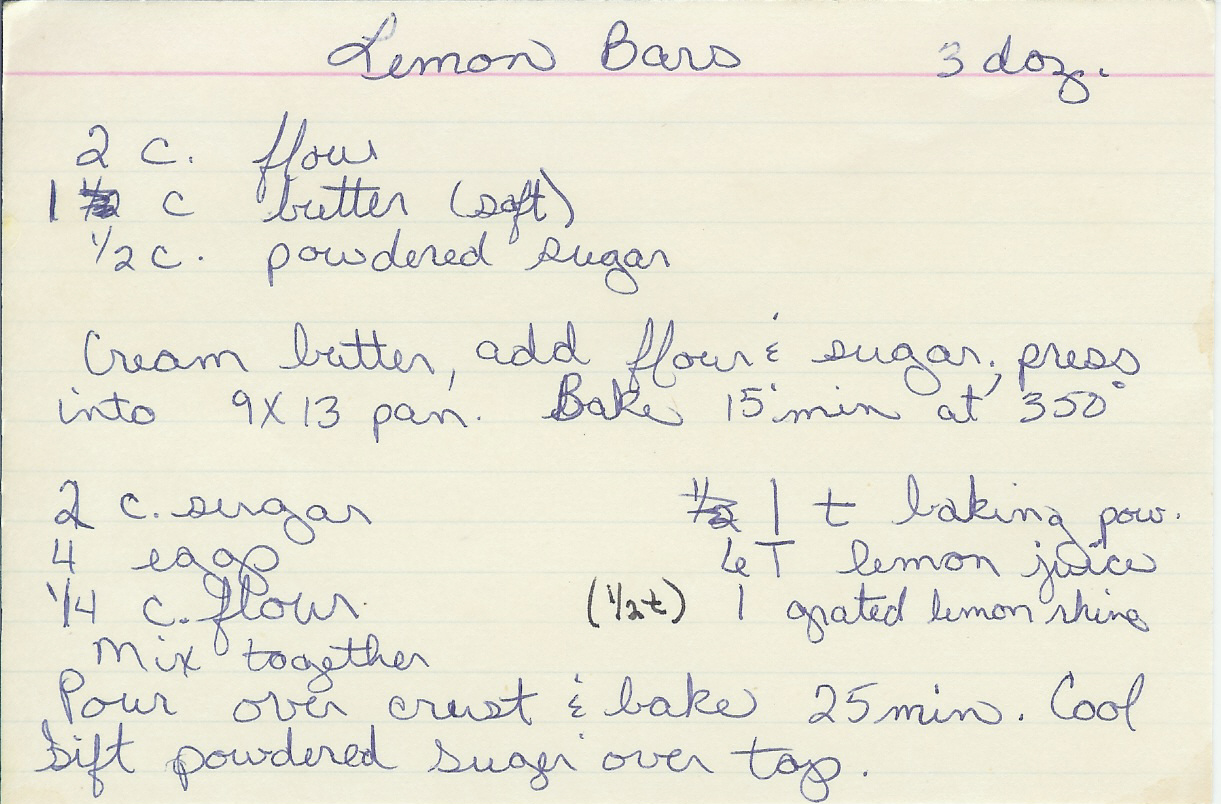 Lemon Bars 3 doz.
2 c. flour
1 c butter (soft)
1/2 c. powdered sugar
Cream butter, add flour & sugar, press
into 9X13 pan. Bake 15 min at 350°
2 c. sugar
4 eggs
1/4 c. flour
Mix together
1/2 1 t baking pow.
6 T lemon juice
(1/2 t) 1 grated lemon rhine
Pour over crust & bake 25 min. Cool
Sift powdered suger over top.